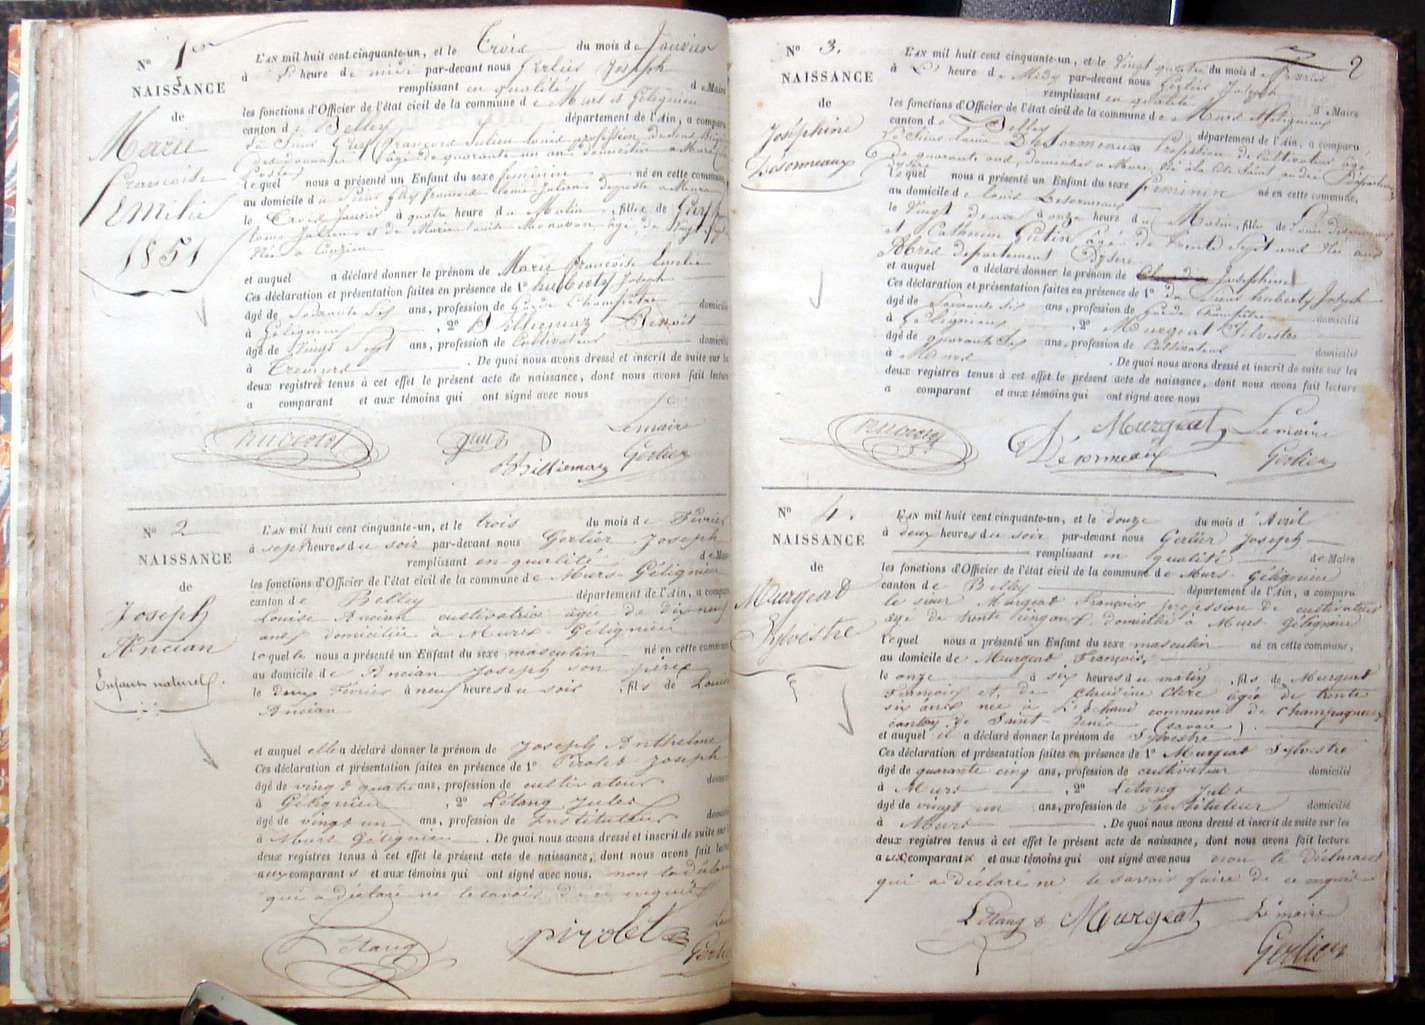 N° 1er
NAISSANCE
de
Marie
Françoise
Emilie
1851
L'AN mil huit cent cinquante-un, et le Trois du mois de Janvier
à heure de midi par-devant nous Gerlier Joseph
remplissant en qualité de Maire
les fonctions d'Officier de l'état civil de la commune de Murs et Gélignieu
canton de Belley département de l'Ain, a comparu
Le Sieur profession de
âgé de quarante un ans domicilié à Murs
Lequel nous a présenté un Enfant du sexe féminin né en cette commune,
au domicile du Sieur
le Trois Janvier à quatre heure du Matin, fille de
et de Marie Louise
et auquel a déclaré donner le prénom de Marie Françoise Emilie
Ces déclaration et présentation faites en présence de 1° Joseph
âgé de Soixante Six ans, profession de Garde Champêtre domicilié
à Gélignieu, 2° Billiemaz Benoit
âgé de Vingt Sept ans, profession de Cultivateur domicilié
à . De quoi nous avons dressé et inscrit de suite sur les
deux registres tenus à cet effet le présent acte de naissance, dont nous avons fait lecture
a comparant et aux témoins qui ont signé avec nous
Le maire
Billiemaz Gerlier
N° 2
NAISSANCE
de
Joseph
Ancian
Enfant naturel.
L'AN mil huit cent cinquante-un, et le trois du mois de Février
à sept heures du soir par-devant nous Gerlier Joseph
remplissant en qualité de Maire
les fonctions d'Officier de l'état civil de la commune de Murs-Gélignieu
canton de Belley département de l'Ain, a comparu
Louise Ancian cultivatrice âgée de dix-neuf
ans domiciliée à Murs-Gélignieu
laquelle nous a présenté un Enfant du sexe masculin né en cette commune
au domicile de Ancian Joseph son père
le deux Février à neuf heures du soir, fils de Louise
Ancian
et auquel elle a déclaré donner le prénom de Joseph Anthelme
Ces déclaration et présentation faites en présence de 1° Pirolet Joseph
âgé de vingt quatre ans, profession de cultivateur
à Gélignieu, 2° Létang Jules
âgé de vingt un ans, profession de Instituteur
à Murs Gélignieu. De quoi nous avons dressé et inscrit de suite sur
deux registres tenus à cet effet le présent acte de naissance, dont nous avons fait lecture
aux comparants et aux témoins qui ont signé avec nous, non
qui a déclaré ne le savoir de ce enquis
Létang pirolet Gerlier
2
N° 3.
NAISSANCE
de
Joséphine
Désormeaux
L'AN mil huit cent cinquante-un, et le Vingt quatre du mois de Février
à heure de Midy par-devant nous Gerlier Joseph
remplissant en qualité de Maire
les fonctions d'Officier de l'état civil de la commune de Murs Gélignieux
canton de Belley département de l'Ain, a comparu
Le Sieur Louis Désormeaux profession de Cultivateur âgé
de quarante ans, domicilié à Murs
Lequel nous a présenté un Enfant du sexe féminin né en cette commune,
au domicile de Louis Désormeaux
le Vingt deux à onze heure du Matin, fille de Louis Désormeaux
et Catherine Gutin âgé de trente Sept ans
département
et auquel a déclaré donner le prénom de Joséphine
Ces déclaration et présentation faites en présence de 1° Joseph
âgé de Soixante Six ans, profession de Garde Champêtre domicilié
à Gélignieux, 2° Murgeat Silvestre
âgé de quarante Six ans, profession de Cultivateur domicilié
à Murs. De quoi nous avons dressé et inscrit de suite sur les
deux registres tenus à cet effet le présent acte de naissance, dont nous avons fait lecture
a comparant et aux témoins qui ont signé avec nous
Murgeat Le maire
Désormeaux Gerlier
N° 4.
NAISSANCE
de
Murgeat
Sylvestre
L'AN mil huit cent cinquante-un, et le douze du mois d'Avril
à deux heures du soir par-devant nous Gerlier Joseph
remplissant en qualité de Maire
les fonctions d'Officier de l'état civil de la commune de Murs-Gélignieu
canton de Belley département de l'Ain, a comparu
le sieur Murgeat François profession de cultivateur
âgé de trente cinq ans domicilié à Murs Gélignieu
Lequel nous a présenté un Enfant du sexe masculin né en cette commune,
au domicile de Murgeat François
le onze à six heures du matin, fils de Murgeat
François et de Claudine Clere âgée de trente
six ans née à L'échaud commune de Champagneux
canton de Saint Genix (Savoie)
et auquel il a déclaré donner le prénom de Sylvestre
Ces déclaration et présentation faites en présence de 1° Murgeat Sylvestre
âgé de quarante cinq ans, profession de cultivateur domicilié
à Murs, 2° Létang Jules
âgé de vingt un ans, profession de Instituteur domicilié
à Murs. De quoi nous avons dressé et inscrit de suite sur les
deux registres tenus à cet effet le présent acte de naissance, dont nous avons fait lecture
aux comparants et aux témoins qui ont signé avec nous non le déclarant
qui a déclaré ne le savoir faire de ce enquis
Létang Murgeat Le maire
Gerlier